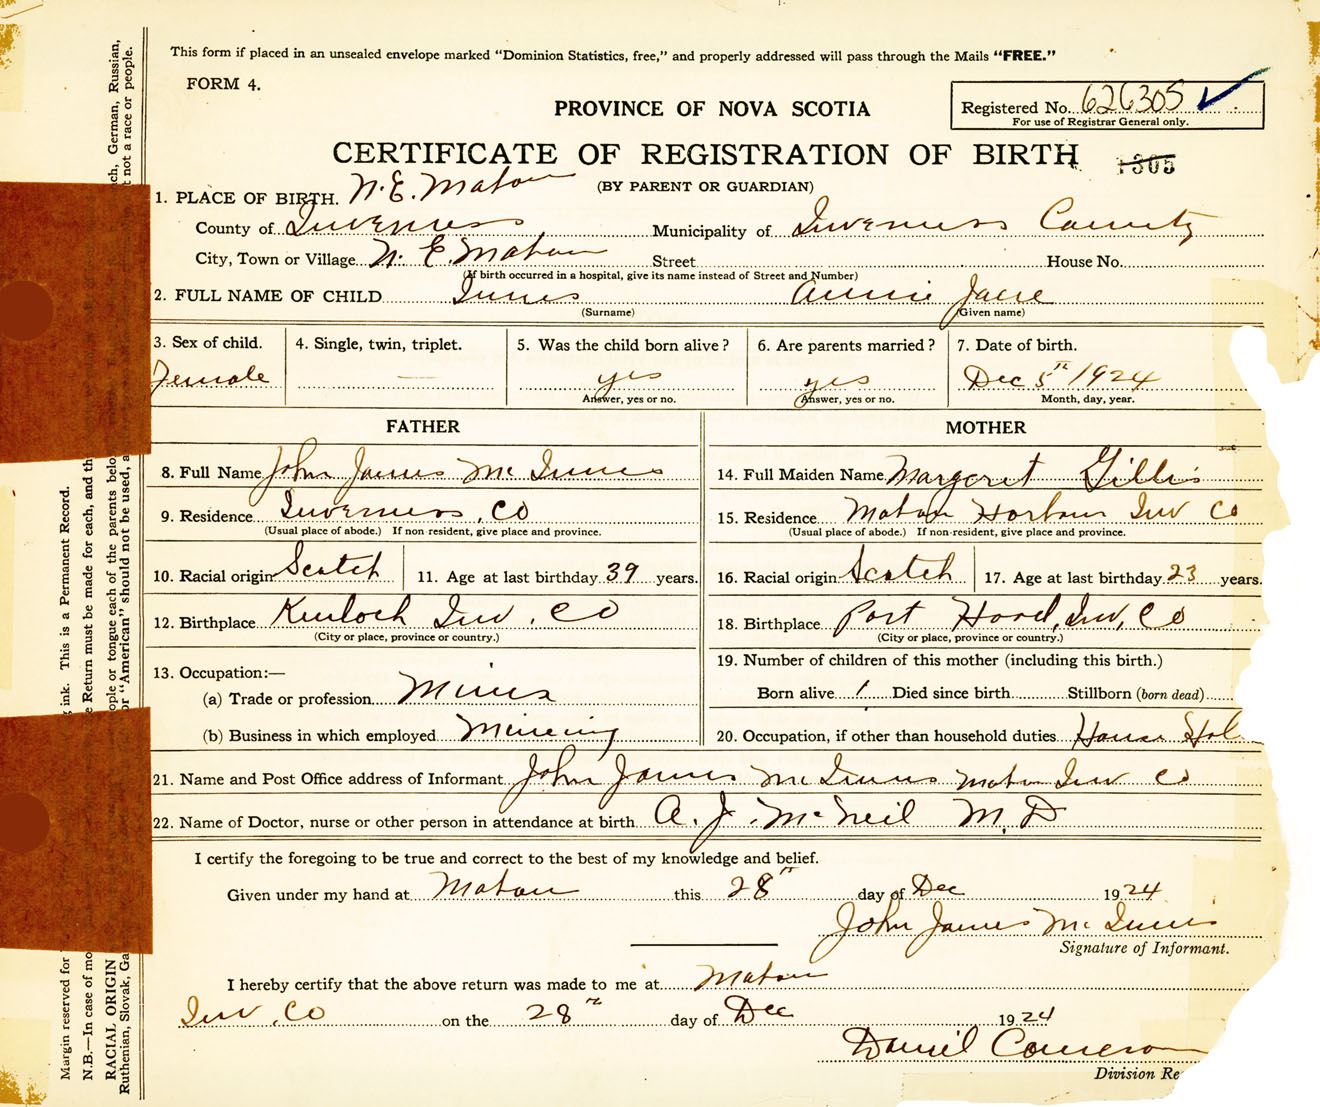 This form if placed in an unsealed envelope marked "Dominion Statistics, free," and properly addressed will pass through the Mails "FREE."
FORM 4.
Registered No. 626305
For use of Registrar General only.
PROVINCE OF NOVA SCOTIA
CERTIFICATE OF REGISTRATION OF BIRTH 1305
(BY PARENT OR GUARDIAN)
1. PLACE OF BIRTH. N. E. Mabou
County of Inverness Municipality of Inverness County
City, Town or Village N. E. Mabou Street House No.
(If birth occurred in a hospital, give its name instead of Street and Number)
2. FULL NAME OF CHILD Innis Annie Jane
(Surname) (Given name)
3. Sex of child. 4. Single, twin, triplet. 5. Was the child born alive? 6. Are parents married? 7. Date of birth.
Female — yes yes Dec 5th 1924
Answer, yes or no. Answer, yes or no. Month, day, year.
FATHER MOTHER
8. Full Name John James Mc Innis 14. Full Maiden Name Margaret Gillis
9. Residence Inverness, Co 15. Residence Mabou Harbour Inv Co
(Usual place of abode.) If non-resident, give place and province. (Usual place of abode.) If non-resident, give place and province.
10. Racial origin Scotch 11. Age at last birthday 39 years. 16. Racial origin Scotch 17. Age at last birthday 23 years.
12. Birthplace Kinloch Inv. Co 18. Birthplace Port Hood, Inv, Co
(City or place, province or country.) (City or place, province or country.)
13. Occupation:— 19. Number of children of this mother (including this birth.)
(a) Trade or profession Miner Born alive 1 Died since birth Stillborn (born dead)
(b) Business in which employed Mineing 20. Occupation, if other than household duties House Hol
21. Name and Post Office address of Informant John James Mc Innis Mabou Inv Co
22. Name of Doctor, nurse or other person in attendance at birth A. J. McNeil M. D
I certify the foregoing to be true and correct to the best of my knowledge and belief.
Given under my hand at Mabou this 28th day of Dec 1924
John James Mc Innis
Signature of Informant.
I hereby certify that the above return was made to me at Mabou
Inv, Co on the 28th day of Dec 1924
Daniel Cameron
Division Re
Margin reserved for
ink. This is a Permanent Record.
N.B.—In case of mo
e Return must be made for each, and th
RACIAL ORIGIN
ople or tongue each of the parents belo
Ruthenian, Slovak, Ga
or "American" should not be used, a
ch, German, Russian,
t not a race or people.